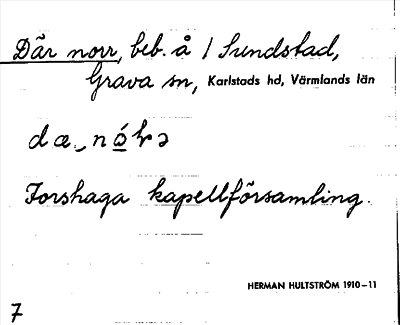 Där norr, beb. å / Sundstad,
Grava sn, Karlstads hd, Värmlands län
Forshaga kapellförsamling.
HERMAN HULTSTRÖM 1910-11
7